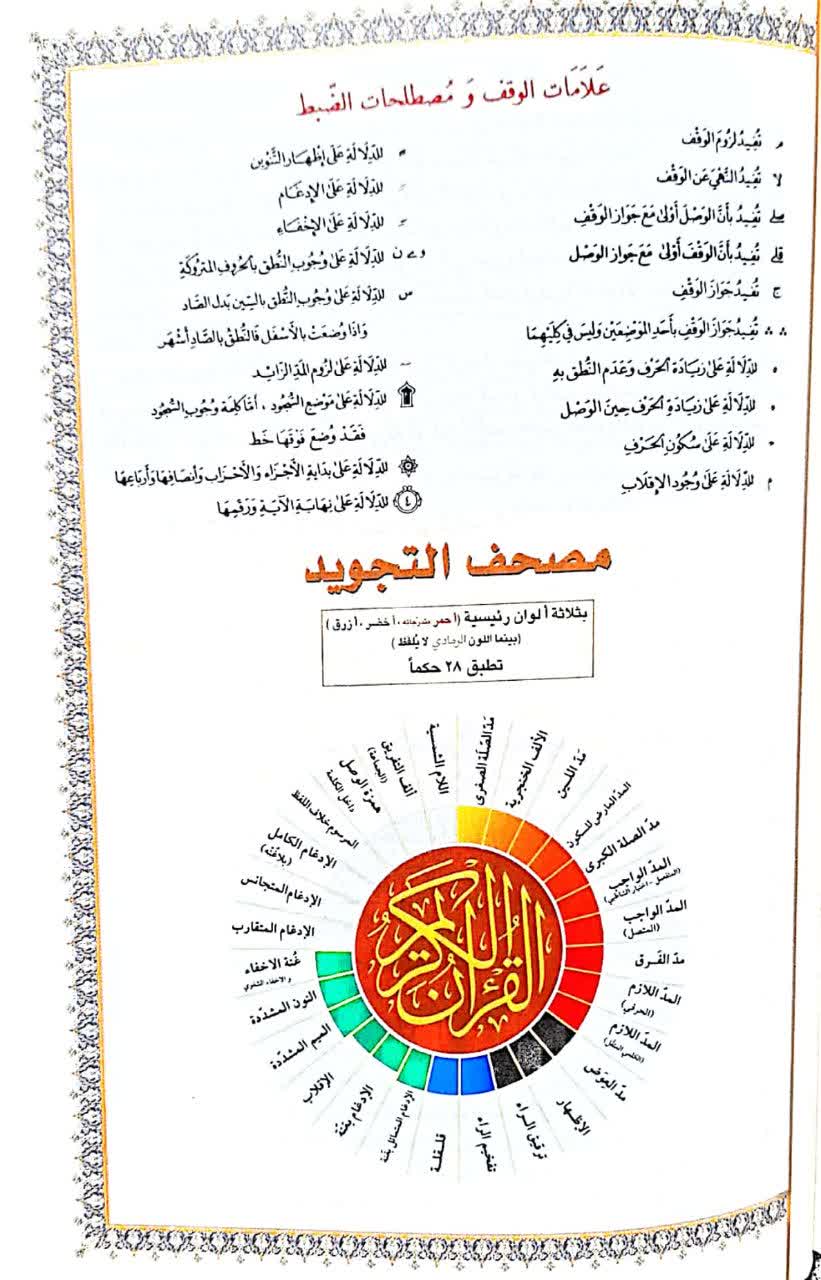 عَلَامَات الوقف وَ مُصطلحات الضّبط
م تُفِيدُ لزُومَ الوَقْف
لا تُفِيدُ النَّهْيَ عَن الوَقْف
صلے تُفِيدُ بأنَّ الوَصْلَ أَوْلىٰ مَعَ جَوَاز الوَقْفِ
قلے تُفِيدُ بأنَّ الوَقْفَ أَوْلىٰ مَعَ جَوازِ الوَصْلِ
ج تُفيدُ جَوَازَ الوَقْفِ
∴ ∴ تُفِيدُ جَوَازَ الوَقْفِ بأَحَدِ المَوْضِعَيْن وَليسَ في كِلَيْهِمَا
ه للدِّلَالَةِ عَلىٰ زيَادَة الحَرْف وَعَدَم النُّطق بهِ
ه للدِّلَالَةِ عَلىٰ زيَادَةِ الحَرْف حِينَ الوَصْل
للدِّلَالَةِ عَلىٰ سُكُون الحَرْفِ
م للدِّلَالَةِ عَلىٰ وُجُود الإِقلَابِ
للدِّلَالَةِ عَلىٰ إظهَار التَّنْوِين
للدِّلَالَةِ عَلىٰ الإِدغَام
للدِّلَالَةِ عَلىٰ الإِخْفَاءِ
و ے ن للدِّلَالَةِ عَلىٰ وُجُوب النُّطق بالحُروف المَترُوكَةِ
س للدِّلَالَةِ عَلىٰ وُجُوب النُّطق بالسِّين بَدَل الصَّاد
وَاذَا وُضعَتْ بالأَسْفَل فَالنُّطقُ بالصَّاد أَشْهَر
~ للدِّلَالَةِ عَلىٰ لزُوم المَدّ الزَّائِد
للدِّلَالَةِ عَلىٰ مَوْضِع السُّجُود ، أمَّا كلِمَة وُجُوب السُّجُود
فَقَدْ وُضعَ فَوْقَهَا خَط
۞ للدِّلَالَةِ عَلىٰ بدَايَة الأَجْزَاء وَالأَحْزَاب وَأَنصَافِهَا وَأَربَاعِهَا
٤ للدِّلَالَةِ عَلىٰ نِهَايَة الآيَةِ وَرَقْمِهَا
مصحف التجويد
بثلاثة ألوان رئيسية (أحمر متدرجاته ، أخضر ، أزرق)
(بينما اللون الرمادي لا يُلفظ)
تطبق ٢٨ حكماً
مَدّ الصّلة الصغرى
الألف الخنجرية
مَدّ اللّين
المدّ العارض للسكون
مدّ الصلة الكبرى
المدّ الواجب
المدّ الواجب
(المتصل)
مدّ الفَرق
المدّ اللازم
(الحرفي)
المدّ اللازم
(الكلمي المثقل)
مدّ العِوَض
الإظهار
ترقيق الـراء
تفخيم الراء
قلـقلـة
الإدغام المتماثل بغنة
الإدغام بغنّة
الإقلاب
الميم المشدّدة
النون المشدّدة
غُنة الاخفاء
والاخفاء الشفوي
الإدغام المتقارب
الإدغام المتجانس
الإدغام الكامل
(بلا غنّة)
المرسوم خلاف اللفظ
همزة الوصل
داخل الكلمة
ألف التفريق
(الجماعة)
اللام الشمسية
القرآن الكريم